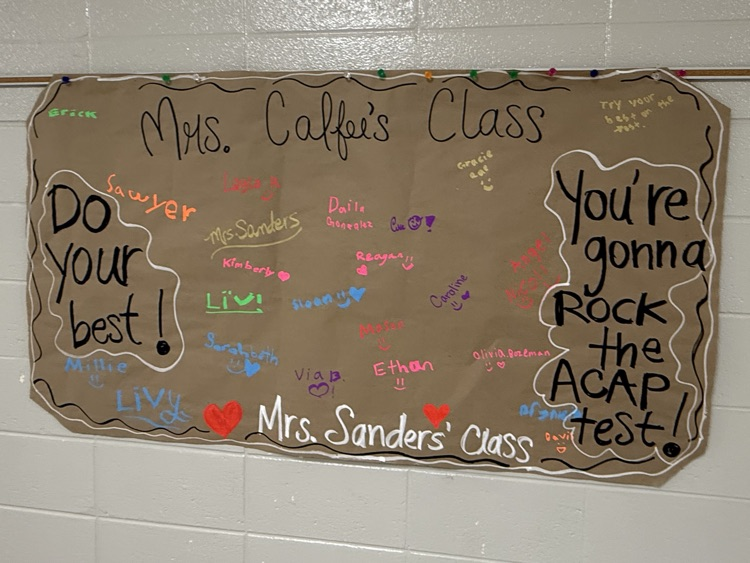 Erick
Mrs. Caffee's Class
Try your
best on the
test.
Gracie
Do
your
best!
Sawyer
Mrs. Sanders
Daila
Gonzalez
Kimberly
Reagan
Livi
Sloan
Caroline
Sarahbeth
Via P.
Ethan
Olivia Bozeman
Millie
Livy
You're
gonna
Rock
the
ACAP
test!
Mrs. Sanders' Class